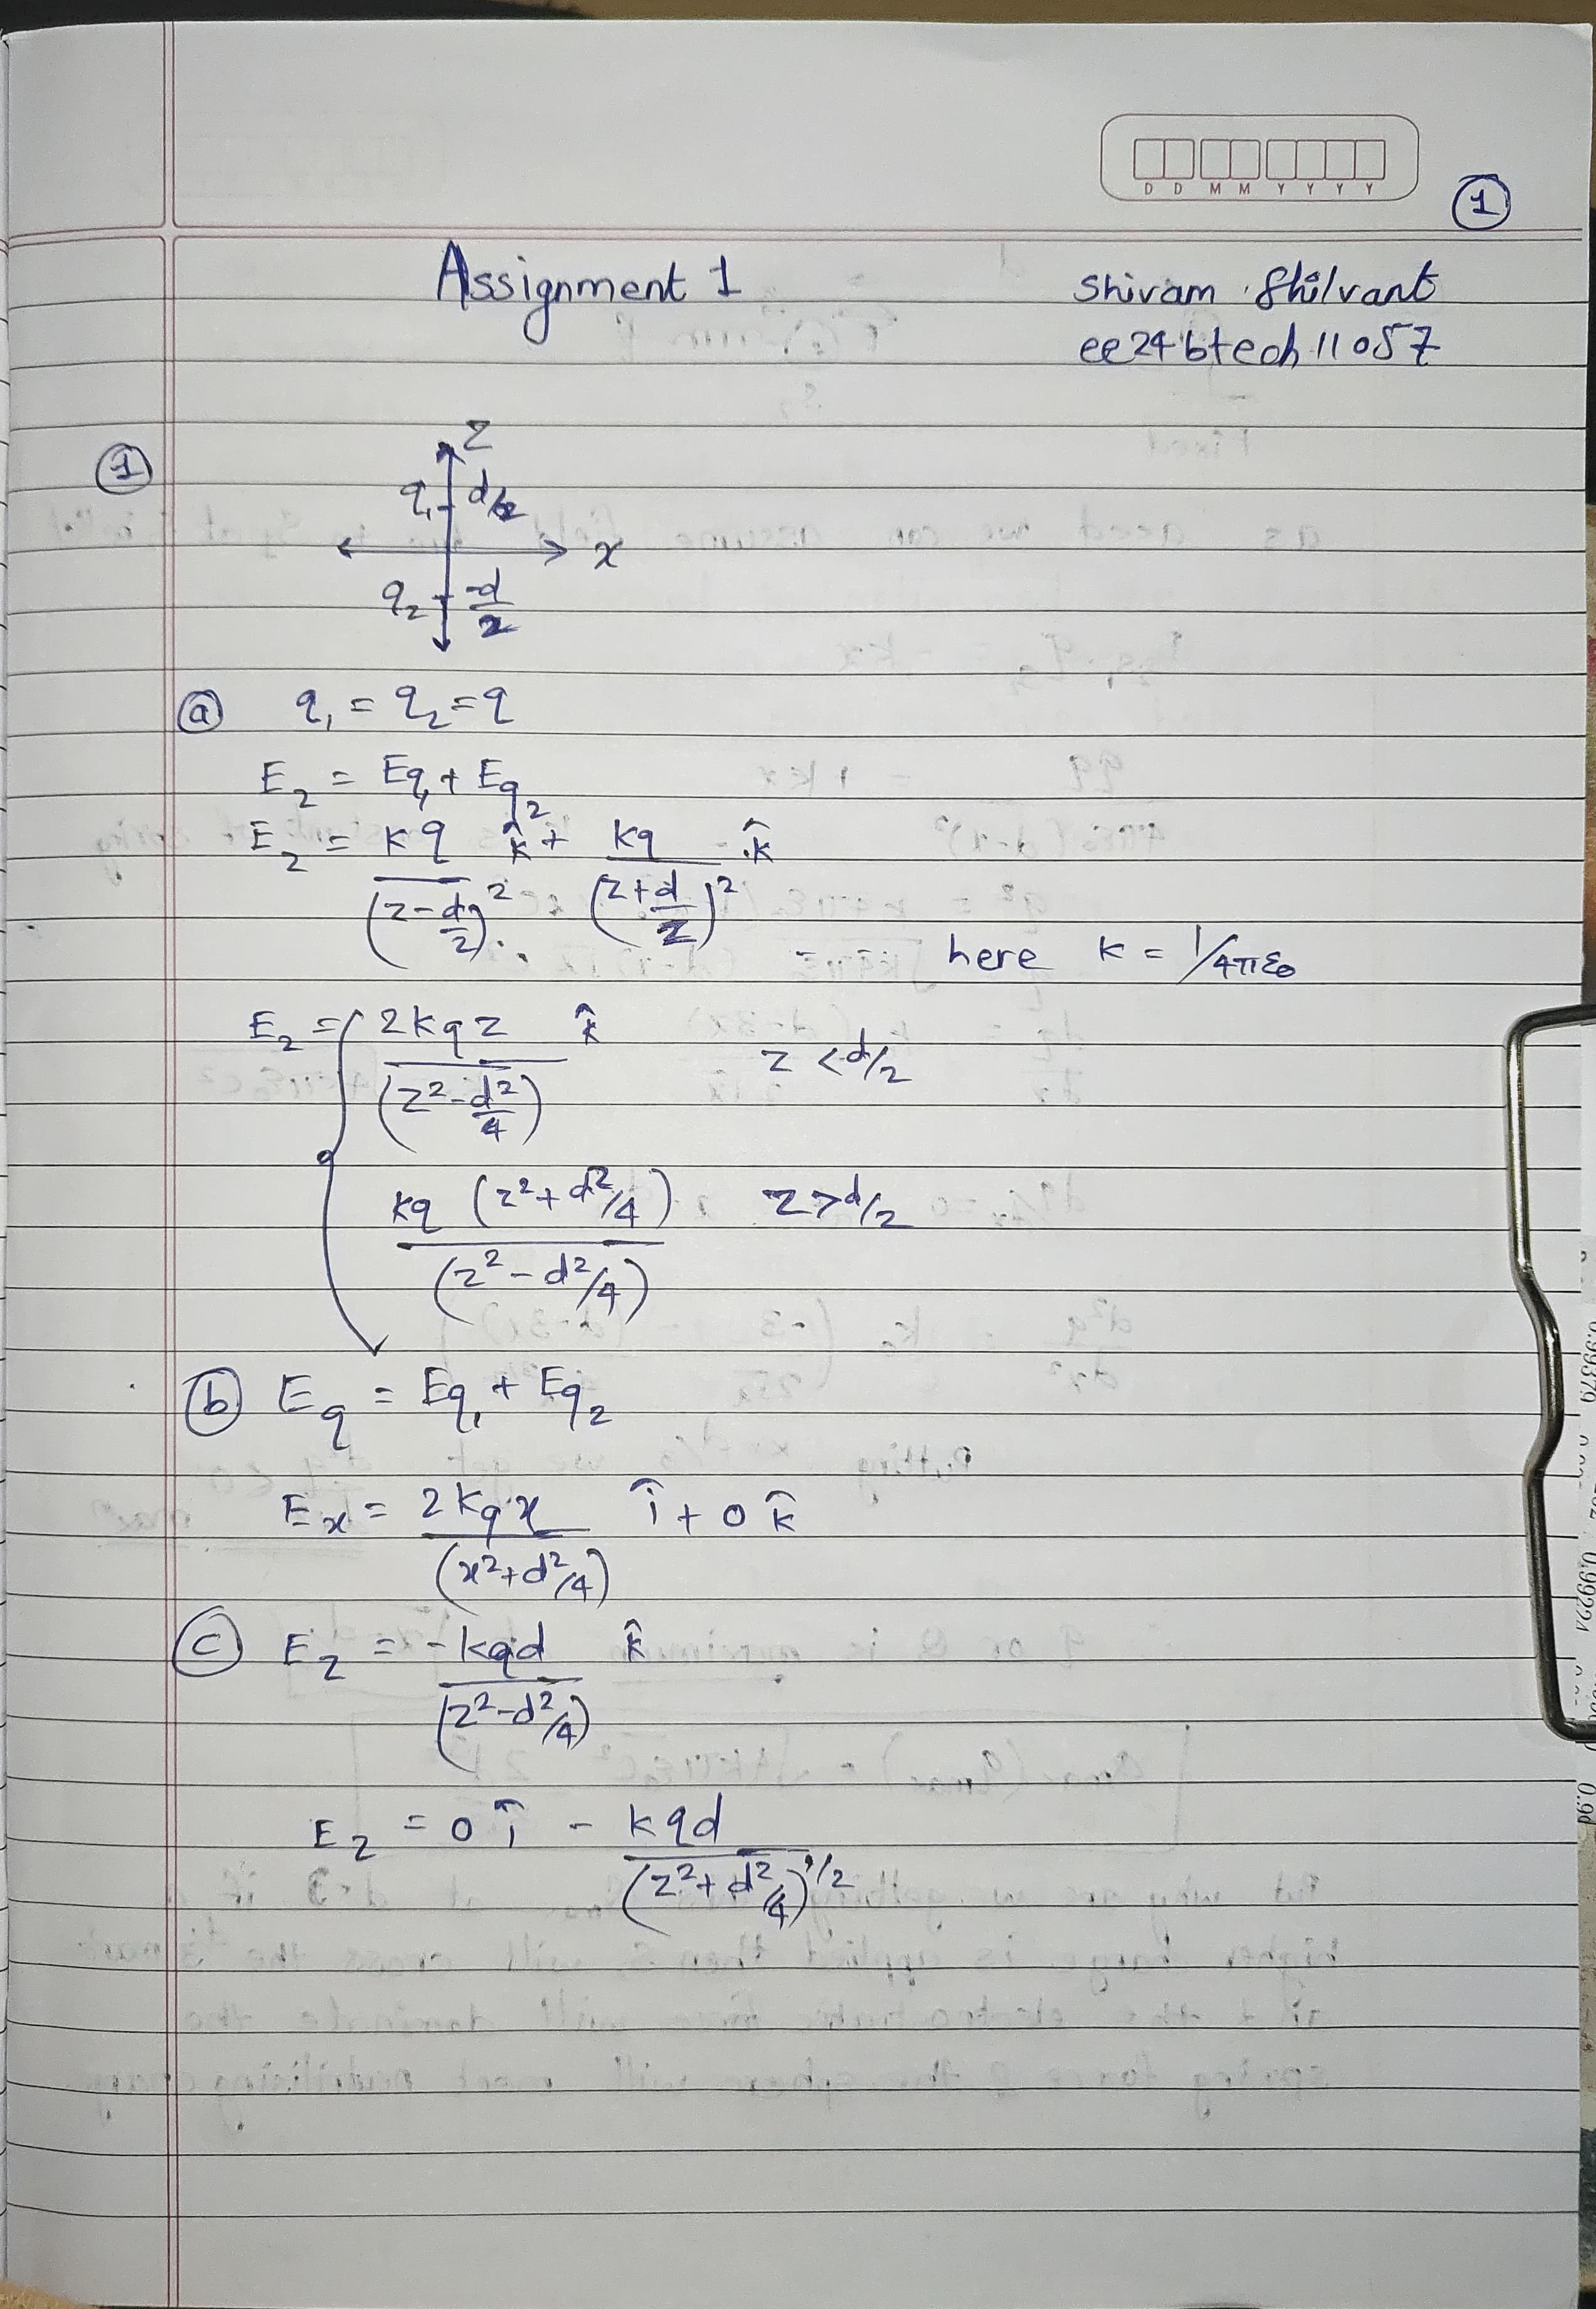 D D M M Y Y Y Y
1
Assignment 1 Shivam Shilvant
ee24btech11057
1
z
q₁ d/2
x
q₂ -d/2
a q₁ = q₂ = q
E_z = Eq₁ + Eq₂
E_z = kq/(z-d/2)² k̂ + kq/(z+d/2)² k̂
here k = 1/4πε₀
E_z = { 2kqz/(z²-d²/4) k̂ z < d/2
kq (z²+d²/4)/(z²-d²/4) z > d/2
b E_q = Eq₁ + Eq₂
E_x = 2kqx/(x²+d²/4) î + 0 k̂
c E_z = -kqd/(z²-d²/4) k̂
E_z = 0 î - kqd/(z²+d²/4)^1/2